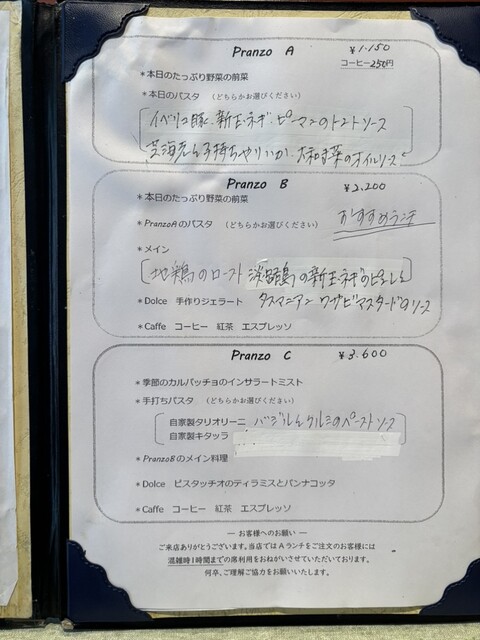 Pranzo A ¥1.150
コーヒー250円
*本日のたっぷり野菜の前菜
*本日のパスタ (どちらかお選びください)
イベリコ豚、新玉ネギ、ピーマンのトマトソース
芝海老と子持ちやりいか、大和寸菜のオイルソース
Pranzo B ¥2,200
*本日のたっぷり野菜の前菜
*PranzoAのパスタ (どちらかお選びください) おすすめランチ
*メイン
地鶏のロースト 淡路島の新玉ネギのピュレと
*Dolce 手作りジェラート タスマニアンワサビマスタードのソース
*Caffe コーヒー 紅茶 エスプレッソ
Pranzo C ¥3.600
*季節のカルパッチョのインサラートミスト
*手打ちパスタ (どちらかお選びください)
自家製タリオリーニ バジルとクルミのペーストソース
自家製キタッラ
*PranzoBのメイン料理
*Dolce ピスタッチオのティラミスとパンナコッタ
*Caffe コーヒー 紅茶 エスプレッソ
― お客様へのお願い ―
ご来店ありがとうございます。当店ではAランチをご注文のお客様には
混雑時1時間までの席利用をおねがいさせていただいております。
何卒、ご理解ご協力をお願いいたします。